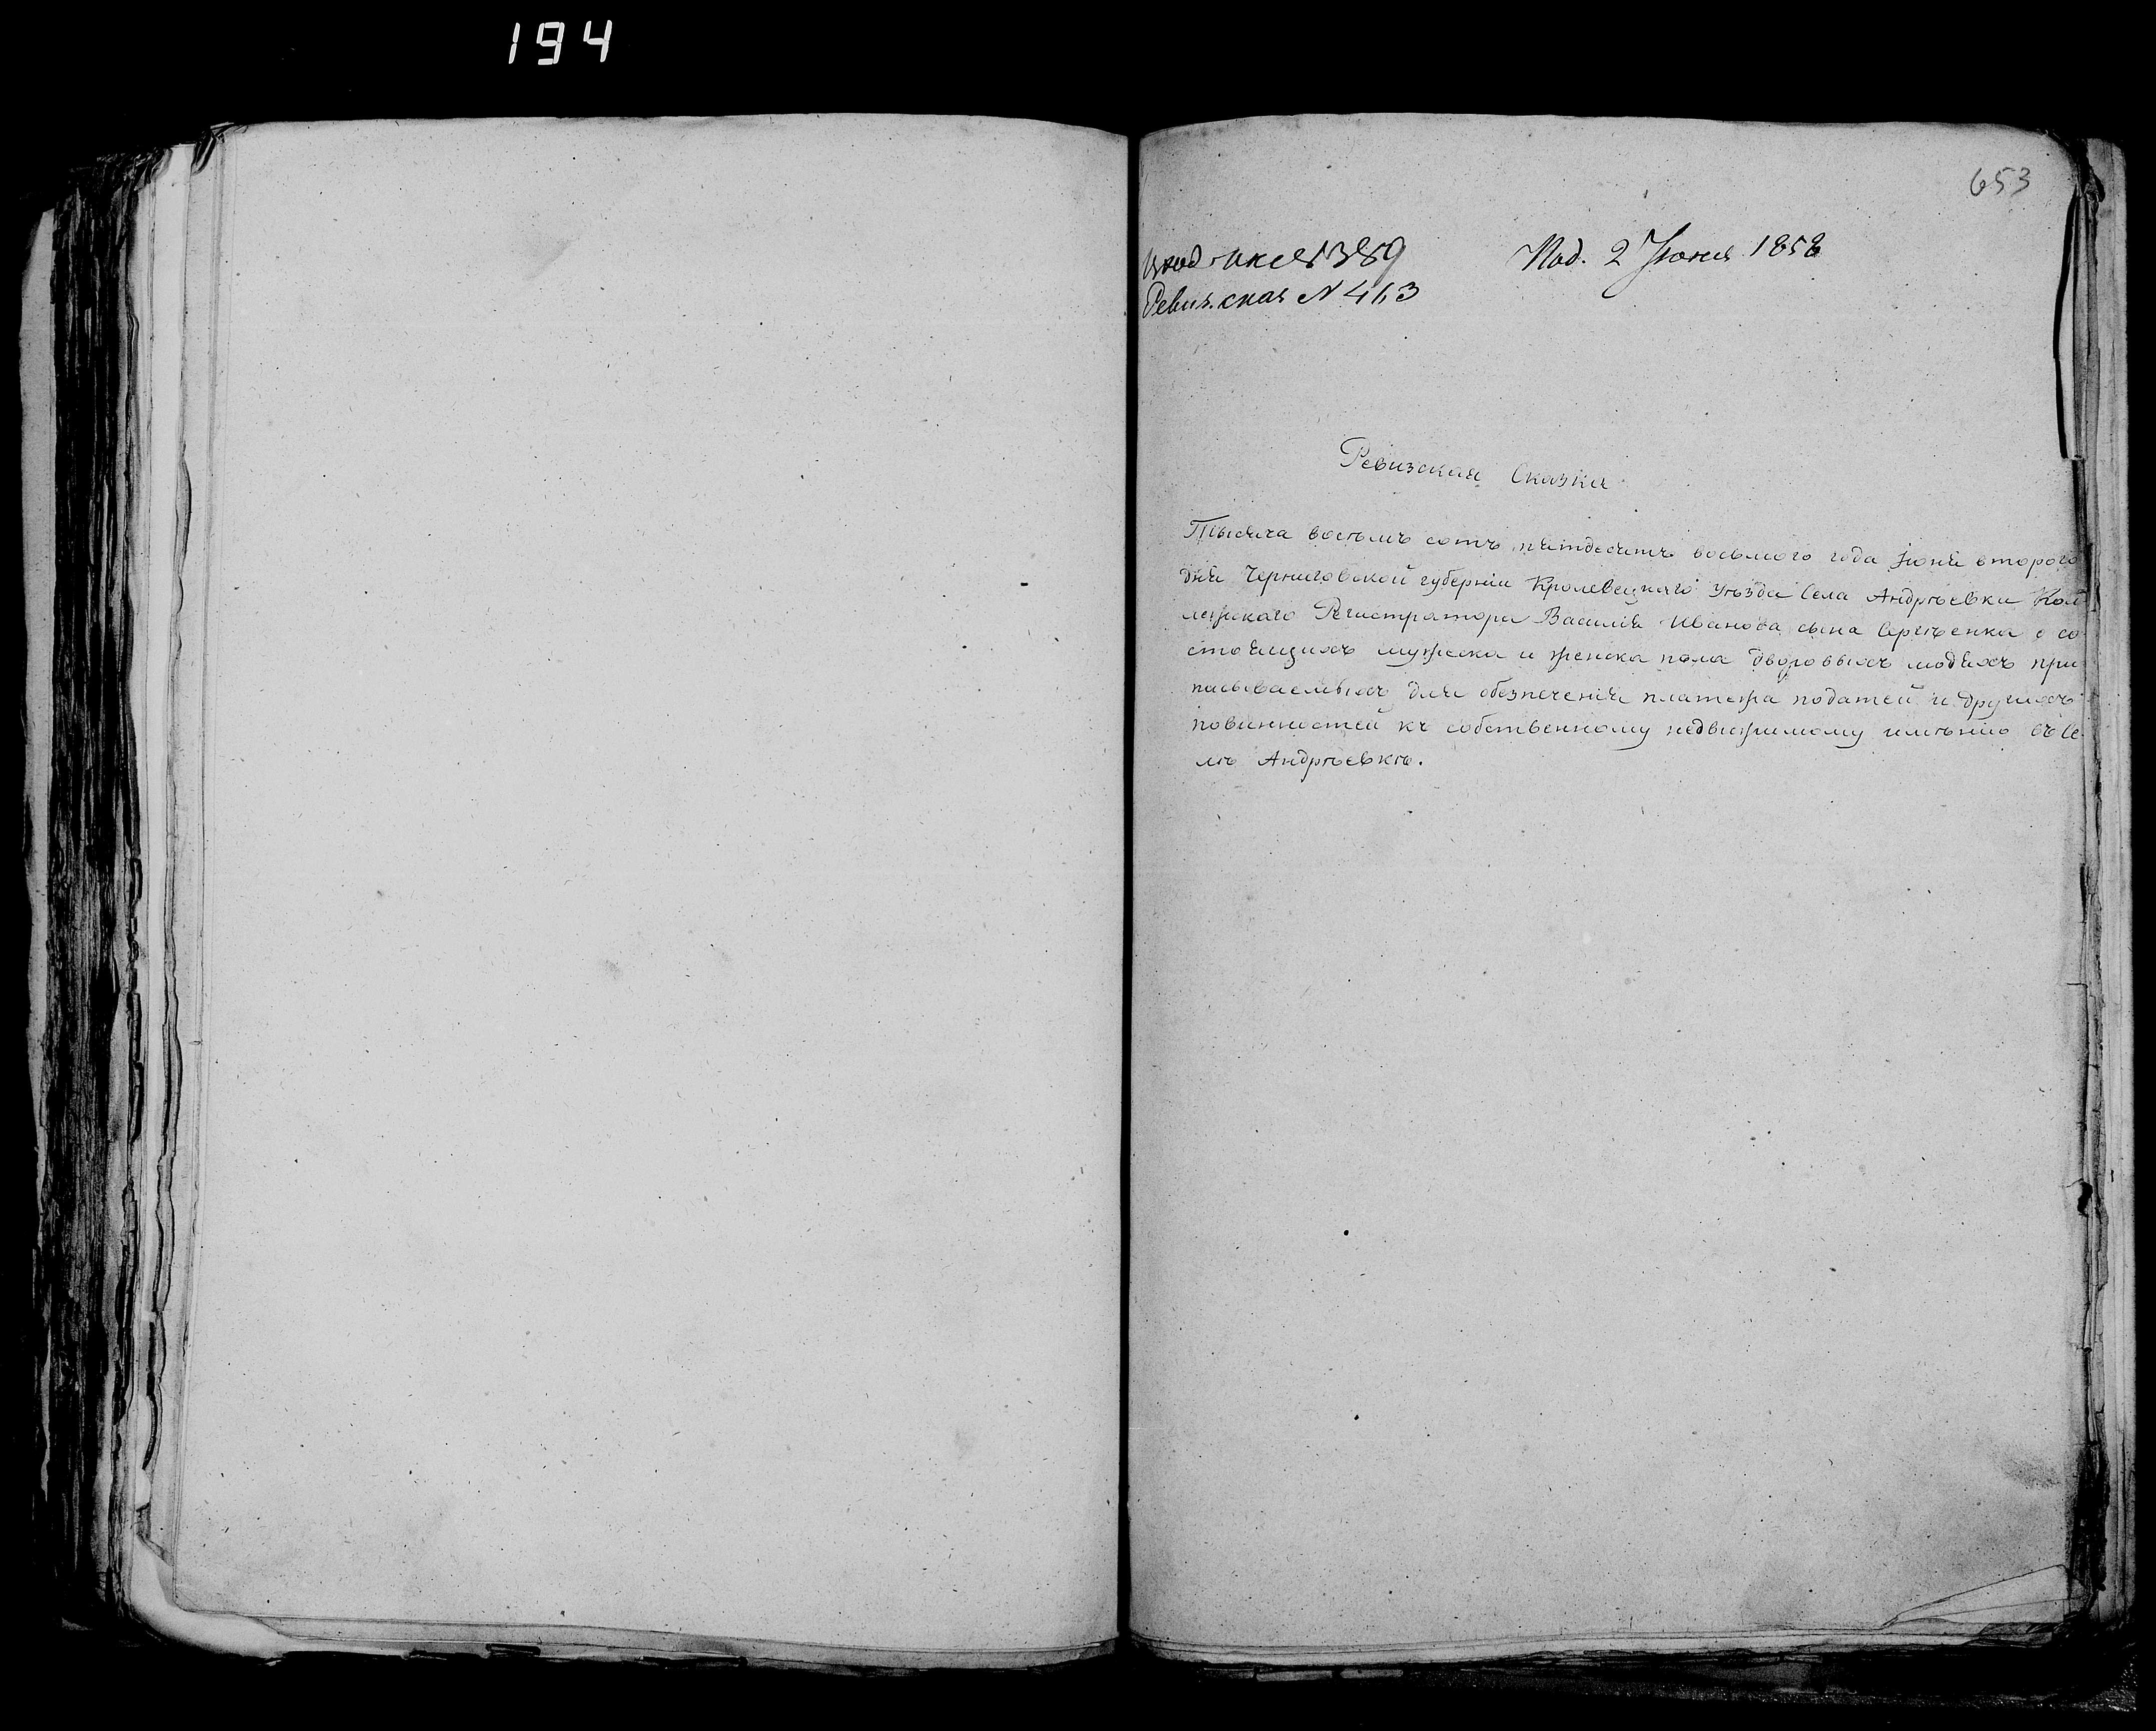 194
653
Под. 2 Іюня 1858
Ревиз. сказ № 413
Ревизская Сказка
Тысяча восемь сотъ пятдесятъ восьмого года Іюня второго
дня Черниговской губерніи Кролевецкаго Уѣзда Села Андрѣевки Кол
лежскаго Регистратора Василія Иванова сына Сергѣенка о со
стоящихъ мужеска и женска пола дворовыхъ людяхъ при
писываемыхъ для обезпеченія платежа податей и другихъ
повинностей къ собственному недвижимому имѣнію въ Се
лѣ Андрѣевкѣ.